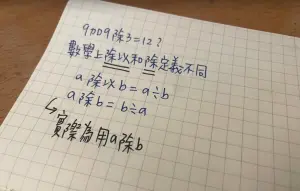 9加9除3=12?
數學上除以和除定義不同
a除以b=a÷b
a除b=b÷a
↳實際為用a除b